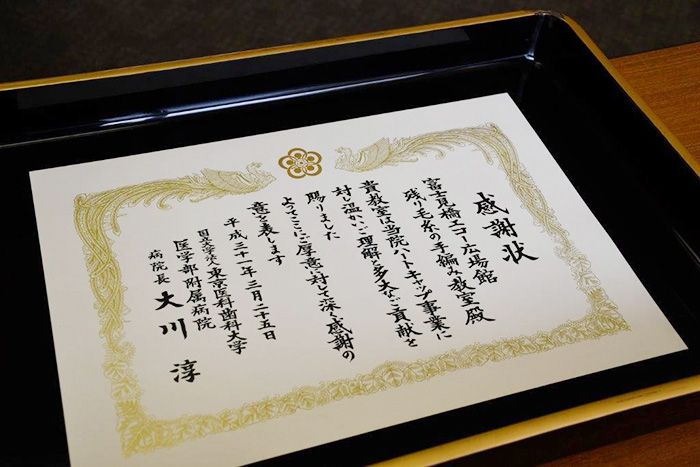 感謝状
富士見橋エコー広場館
残り毛糸の手編み教室殿
貴教室は当院ハートキャップ事業に
対し温かいご理解と多大なご貢献を
賜りました
よってここにご厚意に対して深い感謝の
意を表します
平成三十一年三月二十五日
国立大学法人東京医科歯科大学
医学部附属病院
病院長 大川 淳